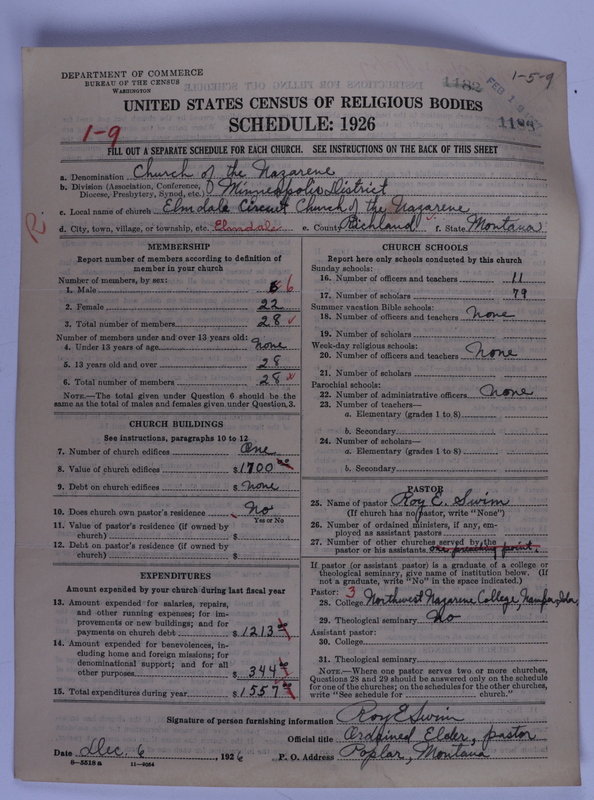 DEPARTMENT OF COMMERCE
BUREAU OF THE CENSUS
WASHINGTON
1182
FEB 1
1-5-9
1184
UNITED STATES CENSUS OF RELIGIOUS BODIES
SCHEDULE: 1926
1-9
FILL OUT A SEPARATE SCHEDULE FOR EACH CHURCH. SEE INSTRUCTIONS ON THE BACK OF THIS SHEET
a. Denomination Church of the Nazarene
b. Division (Association, Conference, Diocese, Presbytery, Synod, etc.) Minneapolis District
c. Local name of church Elmdale Circuit Church of the Nazarene
R.
d. City, town, village, or township, etc. Elmdale e. County Richland f. State Montana
MEMBERSHIP
Report number of members according to definition of
member in your church
Number of members, by sex:
1. Male 6
2. Female 22
3. Total number of members 28
Number of members under and over 13 years old:
4. Under 13 years of age none
5. 13 years old and over 28
6. Total number of members 28
NOTE.—The total given under Question 6 should be
same as the total of males and females given under Question 3.
CHURCH BUILDINGS
See instructions, paragraphs 10 to 12
7. Number of church edifices One
8. Value of church edifices $1700 00
9. Debt on church edifices $ none
10. Does church own pastor's residence No
Yes or No
11. Value of pastor's residence (if owned by
church) $
12. Debt on pastor's residence (if owned by
church) $
EXPENDITURES
Amount expended by your church during last fiscal year
13. Amount expended for salaries, repairs,
and other running expenses; for im-
provements or new buildings; and for
payments on church debt $1213
14. Amount expended for benevolences, in-
cluding home and foreign missions; for
denominational support; and for all
other purposes $344
15. Total expenditures during year $1557
CHURCH SCHOOLS
Report here only schools conducted by this church
Sunday schools:
16. Number of officers and teachers 11
17. Number of scholars 79
Summer vacation Bible schools:
18. Number of officers and teachers None
19. Number of scholars
Week-day religious schools:
20. Number of officers and teachers None
21. Number of scholars
Parochial schools:
22. Number of administrative officers none
23. Number of teachers—
a. Elementary (grades 1 to 8)
b. Secondary
24. Number of scholars—
a. Elementary (grades 1 to 8)
b. Secondary
PASTOR
25. Name of pastor Roy E. Swim
(If church has no pastor, write "None")
26. Number of ordained ministers, if any, em-
ployed as assistant pastors
27. Number of other churches served by the
pastor or his assistants one preaching point.
If pastor (or assistant pastor) is a graduate of a college or
theological seminary, give name of institution below. (If
not a graduate, write "No" in the space indicated.)
Pastor: 3
28. College Northwest Nazarene College, Nampa, Ida.
29. Theological seminary No
Assistant pastor:
30. College
31. Theological seminary
NOTE.—Where one pastor serves two or more churches,
Questions 28 and 29 should be answered only on the schedule
for one of the churches; on the schedules for the other churches,
write "See schedule for church."
Signature of person furnishing information Roy E Swim
Official title Ordained Elder, pastor
Date Dec. 6, 1926 P. O. Address Poplar, Montana
8—5518 a 11—9684